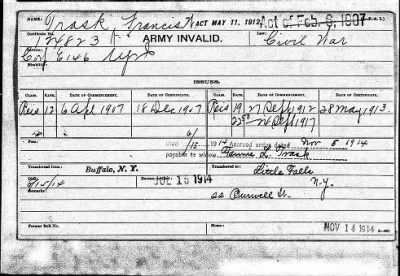 Name: Trask, Francis W ACT MAY 11, 1912 Act of Feb. 6, 1907
Certificate No. 124823 ARMY INVALID. Law: Civil War
Service: Corp E 146
ISSUES.
CLASS. RATE. DATE OF COMMENCEMENT. DATE OF CERTIFICATE. CLASS. RATE. DATE OF COMMENCEMENT. DATE OF CERTIFICATE.
Reis 12 6 Apl 1907 18 Dec 1907 Reis 19 27 Sept 1912 28 May 1913.
22 50 Sept 1917
Fees: Died 1914 Accrued order dated Nov 5 1914
payable to widow, Trask
Transferred from: Buffalo, N. Y. Transferred to: Little Falls
6/15/14 JUL 15 1914 N.Y.
Remarks: 22 Burwell St.
Former Roll No. Home: NOV 14 1914